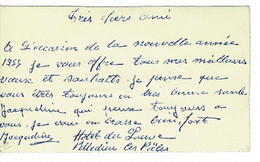 Très chers Amis
A l'occasion de la nouvelle année
1957 je vous offre tous mes meilleurs
vœux et souhaits. Je pense que
vous êtes toujours en très bonne santé.
Jacqueline qui pense toujours a
vous. Je vous embrasse bien fort
Jacqueline Hotel du Louvre
les